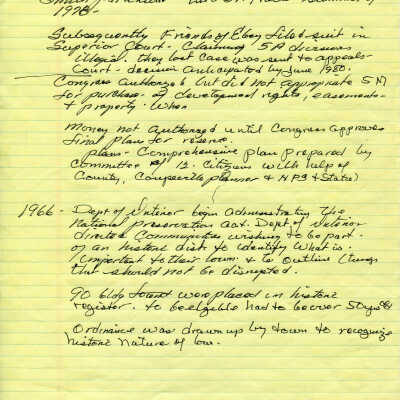 1978-
Subsequently Friends of Ebey filed suit in
Superior Court - Claiming SA decisions
illegal. they lost case was sent to appeals
Court - decision anticipated by June 1980.
Congress authorized but did not appropriate 5 M
for purchase of development rights, easements -
+ property. When
Money not authorized until Congress approves
final plan for reserve.
plan - Comprehensive plan prepared by
Committee of 13 Citizens with help of
County, Coupeville planner & NPS & State)
1966 - Dept of Interior began administrating the
National preservation act. Dept of Interior
directed Communities wishing to be part
of an historic dist to identify what is
important to their town & to outline things
that should not be disrupted.
90 bldgs were placed in historic
register. to be eligible had to be over 50 yrs old
Ordinance was drawn up by town to recognize
historic nature of